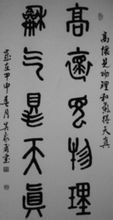 高懷見物理和氣得天真
高懷見物理
龢氣得天真
歲在甲申春月